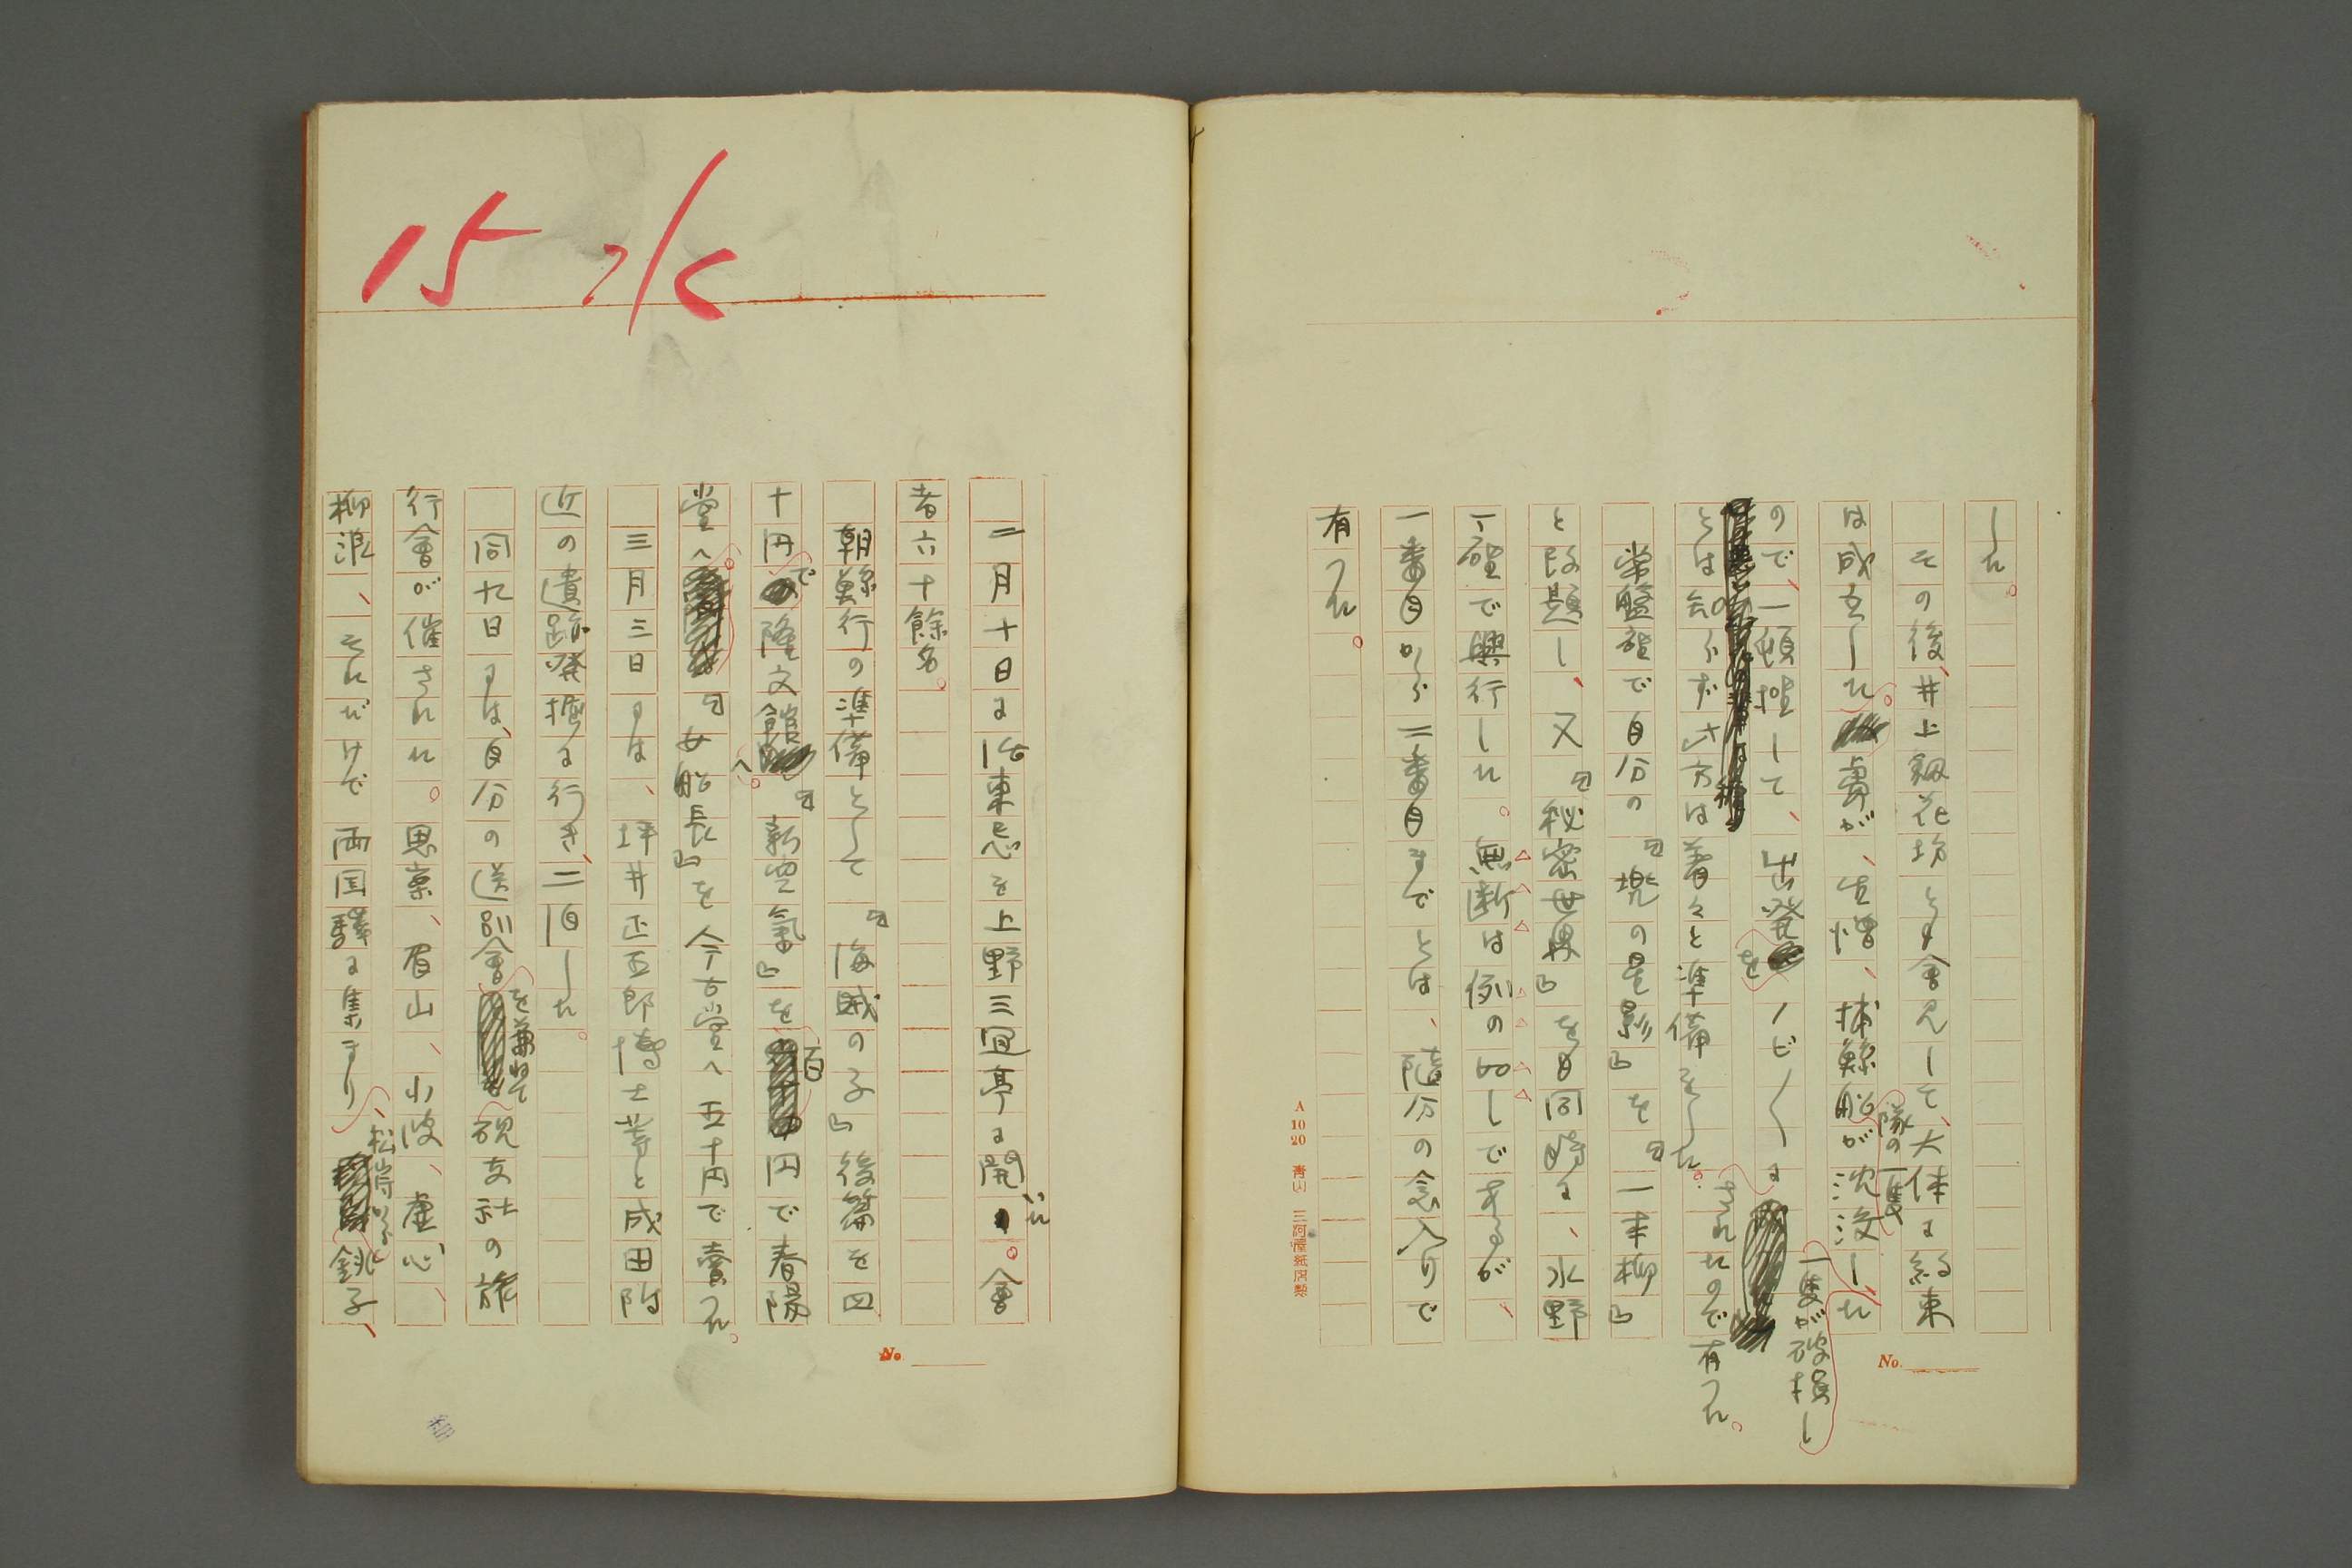 した。
その後、井上剱花坊とも會見して、大体に約束
は成立した。處が、生憎、捕鯨船隊の一隻が沈没した、一隻が破損し
ので、一頓挫して、出発をノビ〱に
とは知らず此方は着々と準備をした。されたので有つた。
常盤座で自分の『墺の星影』を『一本柳』
と改題し、又『秘密世界』を同時に、水野
一座で興行した。無断は例の如しであるが、
一番目から二番目までとは、随分の念入りで
有つた。
A 10 20 青山 三河屋紙店製
No.
15 7/5
二月十日に1佐東忌を上野三宜亭に開いた。會
者六十餘名。
朝鯨行の準備として『海賊の子』後篇を四
十円で隆文館へ。『新空氣』を百円で春陽
堂へ。『女船長』を今古堂へ五十円で賣つた。
三月三日には、坪井正五郎博士等と成田附
近の遺跡発掘に行き、二泊した。
同九日には、自分の送別會を兼ねて硯友社の旅
行會が催された。思案、眉山、小波、虚心、
柳浪、それだけで両国驛に集まり、松岸から銚子、
No.